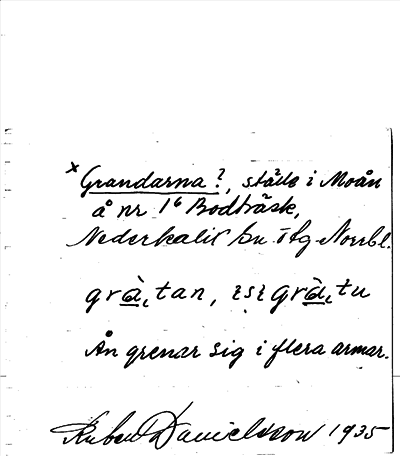 x Grandarna?, ställe i Moån
å nr 1⁶ Bodträsk,
Nederkalix sn. i tg Norrbl.
grà̱ˌtan, ɪsɪgrà̱ˌtu
Ån grenar sig i flera armar.
Ruben Danielsson 1935